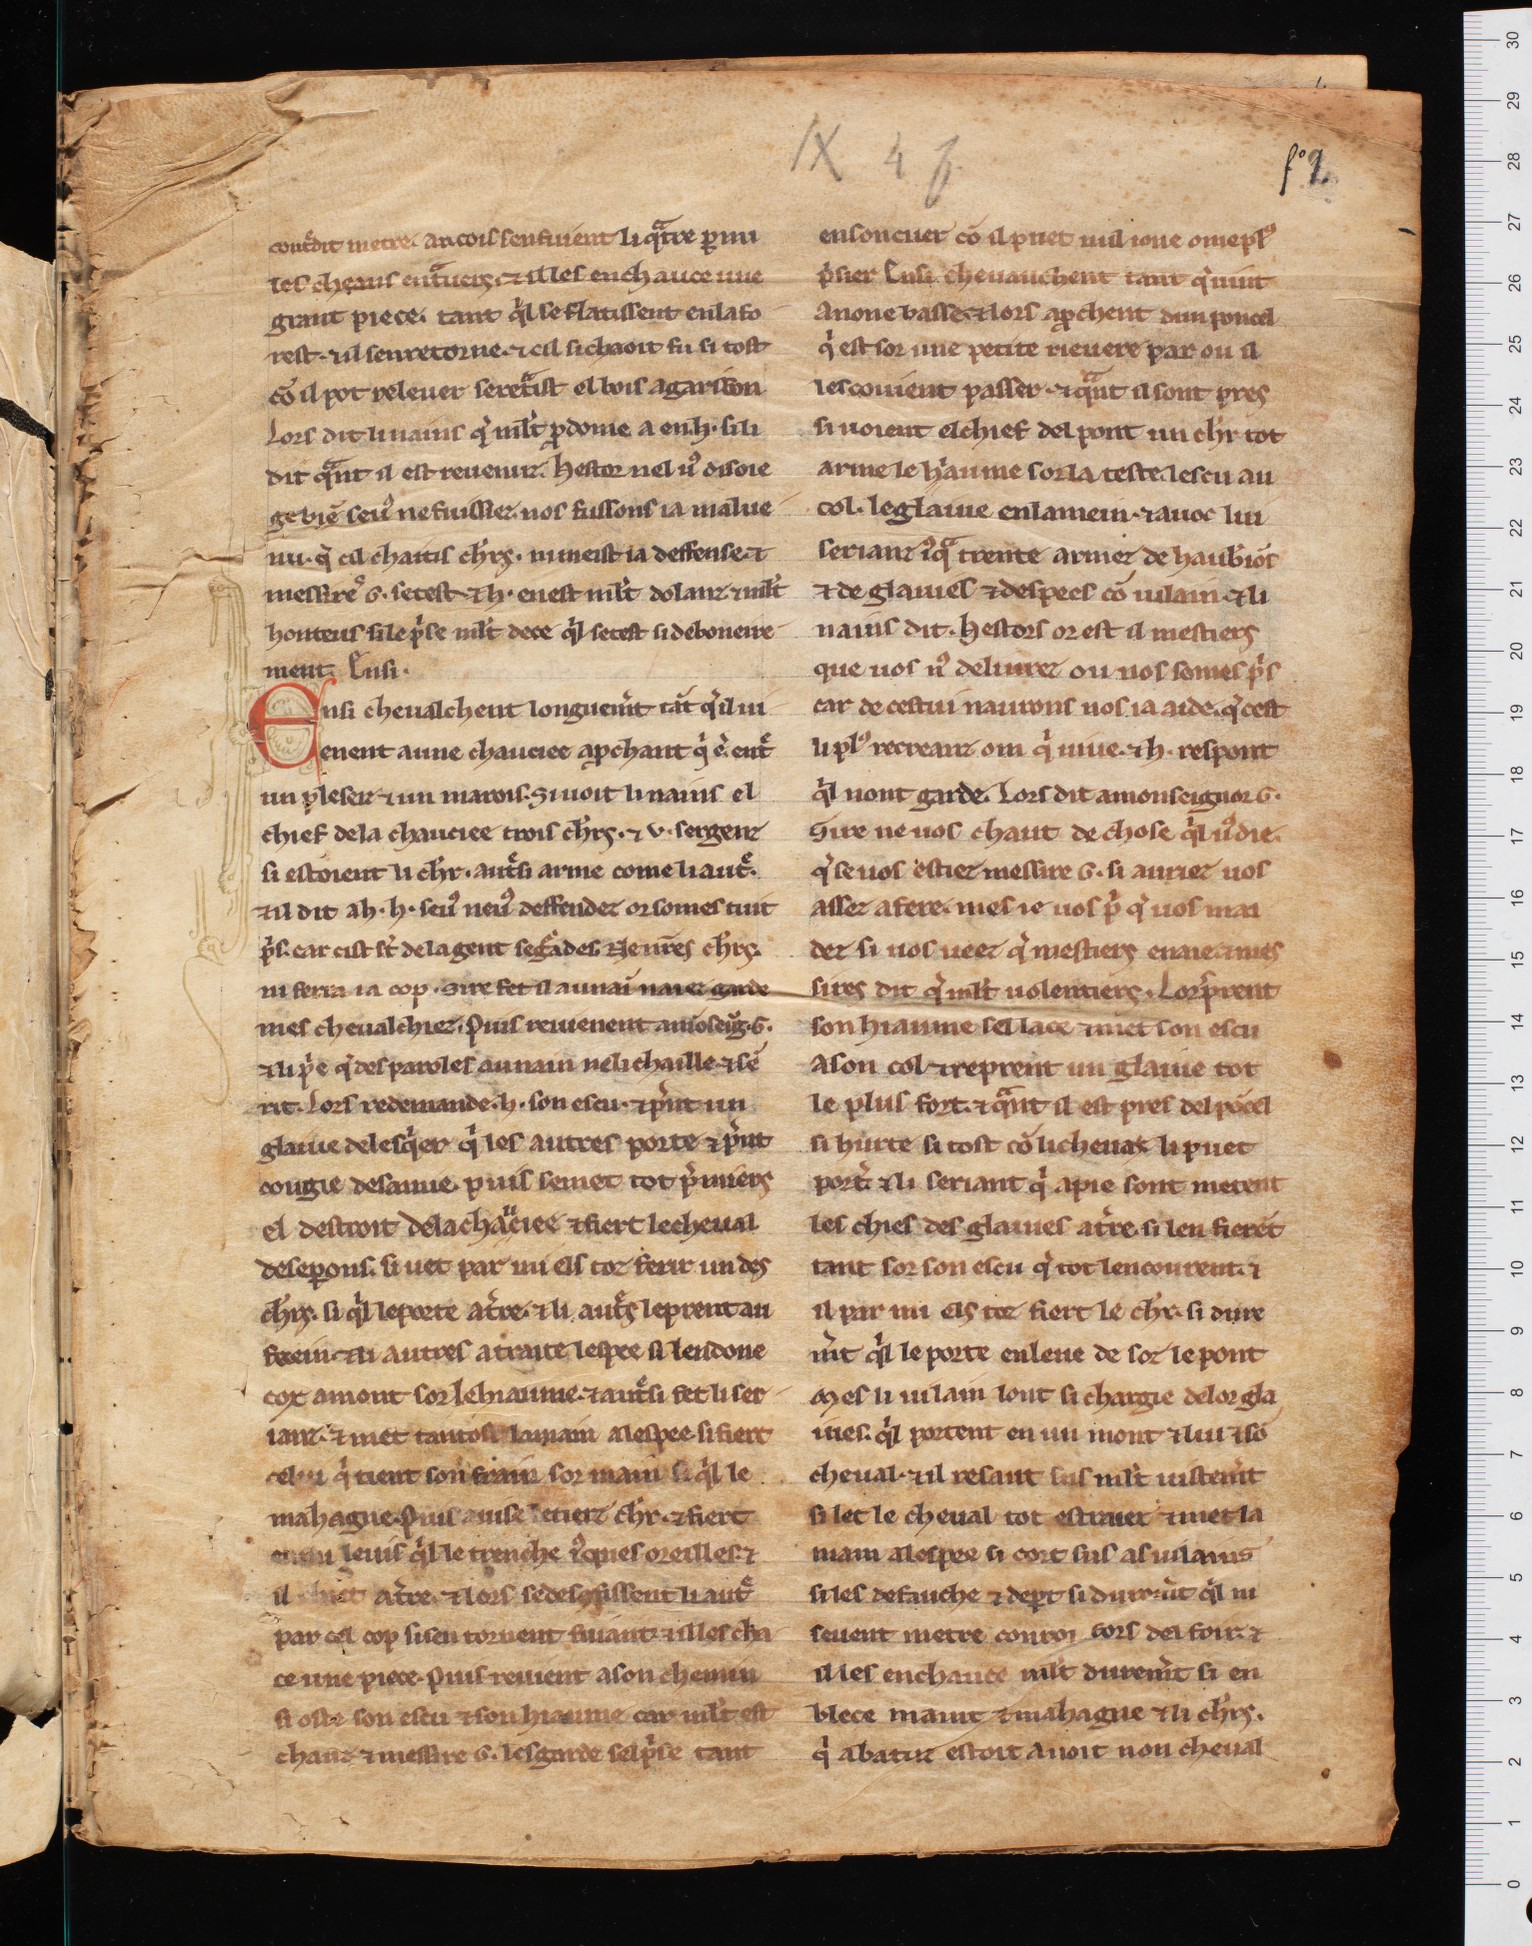 IX 4 f
fº 2
cont̾dit metre. ancois senfuient li q̾tre ꝑ mi
les cheans ent̾uers. ⁊ il les enchauce une
grant piece. tant ql̾ se flatissent en la fo
rest. ⁊ il sen retorne. ⁊ cil si chaoit fu si tost
cō il pot releuer se ret̾ist el bois a garison
Lors dit li nains q̾ ml̾t ꝓdome a en .h. si li
dit q̾nt il est reuenuz. hestor nel uꝰ disoie
ge biē seuꝰ ne fuissiez. nos fussons ia malue
nu. q̾ cil chaitis chr̾s. ni meist ia deffense. ⁊
messire .G. se test ⁊ .h. en est ml̾t dolanz ⁊ ml̾t
honteus si le p̾se ml̾t de ce ql̾ se test si deboneire
ment. Ensi.
Ensi cheualchent longuem̾t tāt q̾l ui
enent a une chauciee ap̱chant q̾ ē̾ ent̾
un pleseiz ⁊ un marois. Si uoit li nains el
chief de la chauciee trois chr̾s. ⁊ .v. sergenz
si estoient li chr̾. aut̾si arme come li aut̾.
⁊ il dit a .h. h. seuꝰ neuꝰ deffendez or somes tuit
p̾s. car cist st̾ de la gent seg̾ades.
ni ferra ia cop. Sire fet il au nai naiez garde
mes cheualchiez. Puis reuienent a moseig̾. G.
⁊ li p̾e q̾ des paroles au nain ne li chaille. ⁊ sē
rit. Lors redemande .h. son escu. ⁊ p̾nt un
glaiue del esq̾er q̾ les autres porte ⁊ p̾nt
congie de sanue. puis se met tot p̾miers
el destroit de la chauciee ⁊ fiert le cheual
des eꝑons. si uet par mi els toz ferir un des
chr̾s. si ql̾ le porte a t̾re. ⁊ li aut̾s le prent au
frein. ⁊ li autres a traite lespee si len done
cox amont sor le hiaume. ⁊ aut̾si fet li ser
ianz. ⁊ met tantost la main a lespee si fiert
celui q̾ tient son frain sor main si ql̾ le
mahague. Puis auise le tierz chr̾. ⁊ fiert
ql̾ le trenche iq̾ es oreilles. ⁊
il chiet a t̾re. ⁊ lors se desc̱fissent li aut̾
par cel cop si sen tornent fuiant. ⁊ il les cha
ce une piece. Puis reuient a son chemin
si oste son escu ⁊ son hiaume car ml̾t est
chauz ⁊ messire G. lesgarde sel p̾se tant
en son cuer cō il puet nul ioue ome plꝰ
p̾sier Ensi cheuauchent tant q̾ uint
a none basse. ⁊ lors ap̱chent dun poncel
q̾ est sor une petite riuere par ou il
les couient passer. ⁊ q̾nt il sont pres
si uoient el chief del pont un chr̾ tot
arme le h̾aume sor la teste. lescu au
col. le glaiue en la mein. ⁊ auoc lui
serianz iq̾ trente armez de haub̾ios
⁊ de glaiues ⁊ despees cō uilain. ⁊ li
nains dit. hestors or est il mestiers
que uos nꝰ deliurez ou nos somes p̾s
car de cestui naurons nos ia aide. q̾ cest
li plꝰ recreanz om q̾ uiue. ⁊ .h. respont
ql̾ nont garde. Lors dit a monseignor G.
Sire ne uos chaut de chose ql̾ uꝰ die.
q̾ se uos estiez messire G. si auriez uos
assez a fere. mes ie uos p̾ q̾ uos mai
dez si uos ueez q̾ mestiers en aie. ⁊ mes
sires dit q̾ ml̾t uolentiers. Lor p̾rent
son hiaume sel lace ⁊ met son escu
a son col ⁊ reprent un glaiue tot
le plus fort. ⁊ q̾nt il est pres del pōcel
si hurte si tost cō li cheuax li puet
port̾. ⁊ li seriant q̾ a pie sont metent
les chies des glaiues a t̾re. si len fierēt
tant sor son escu q̾ tot lencourent. ⁊
il par mi els toz fiert le chr̾. si dure
m̾t ql̾ le porte enleue de sor le pont
Mes li uilain lont si chargie de lor gla
iues. ql̾ portent en un mont ⁊ lui ⁊ sō
cheual. ⁊ il resaut sus ml̾t uistem̾t
si let le cheual tot estraier ⁊ met la
main a lespee si cort sus as uilains
si les defauche ⁊ deꝑt si durem̾t ql̾ ni
seuent metre conroi fors del foir. ⁊
il les enchauce ml̾t durem̾t si en
blece maint ⁊ mahague ⁊ li chr̾s.
q̾ abatuz estoit auoit non cheual